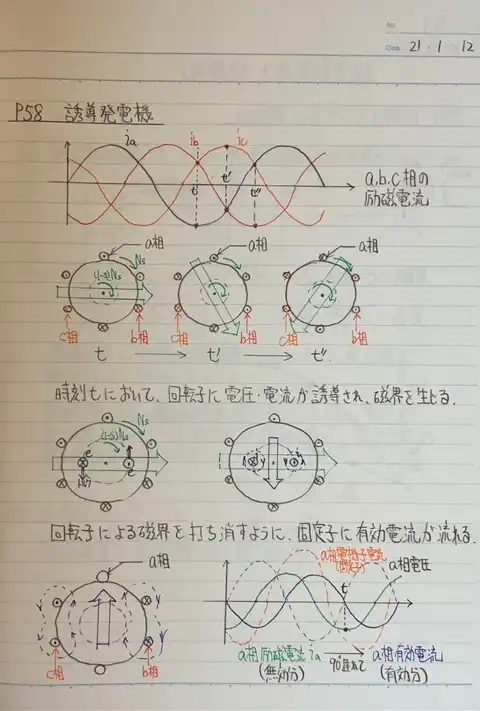 No.
Date 21・1・12
P.58 誘導発電機
ia ib ic
t t' t''
a,b,c相の
励磁電流
a相 a相 a相
(1-s)Ns Ns
c相 b相 c相 b相 c相 b相
t → t' → t''
時刻tにおいて、回転子に電圧・電流が誘導され、磁界を生じる。
Ns
(1-s)Ns
e e
回転子による磁界を打ち消すように、固定子に有効電流が流れる。
a相
c相 b相
a相電機子電流
(固定子)
a相電圧
t
a相励磁電流ia → a相有効電流
(無効分) (有効分)